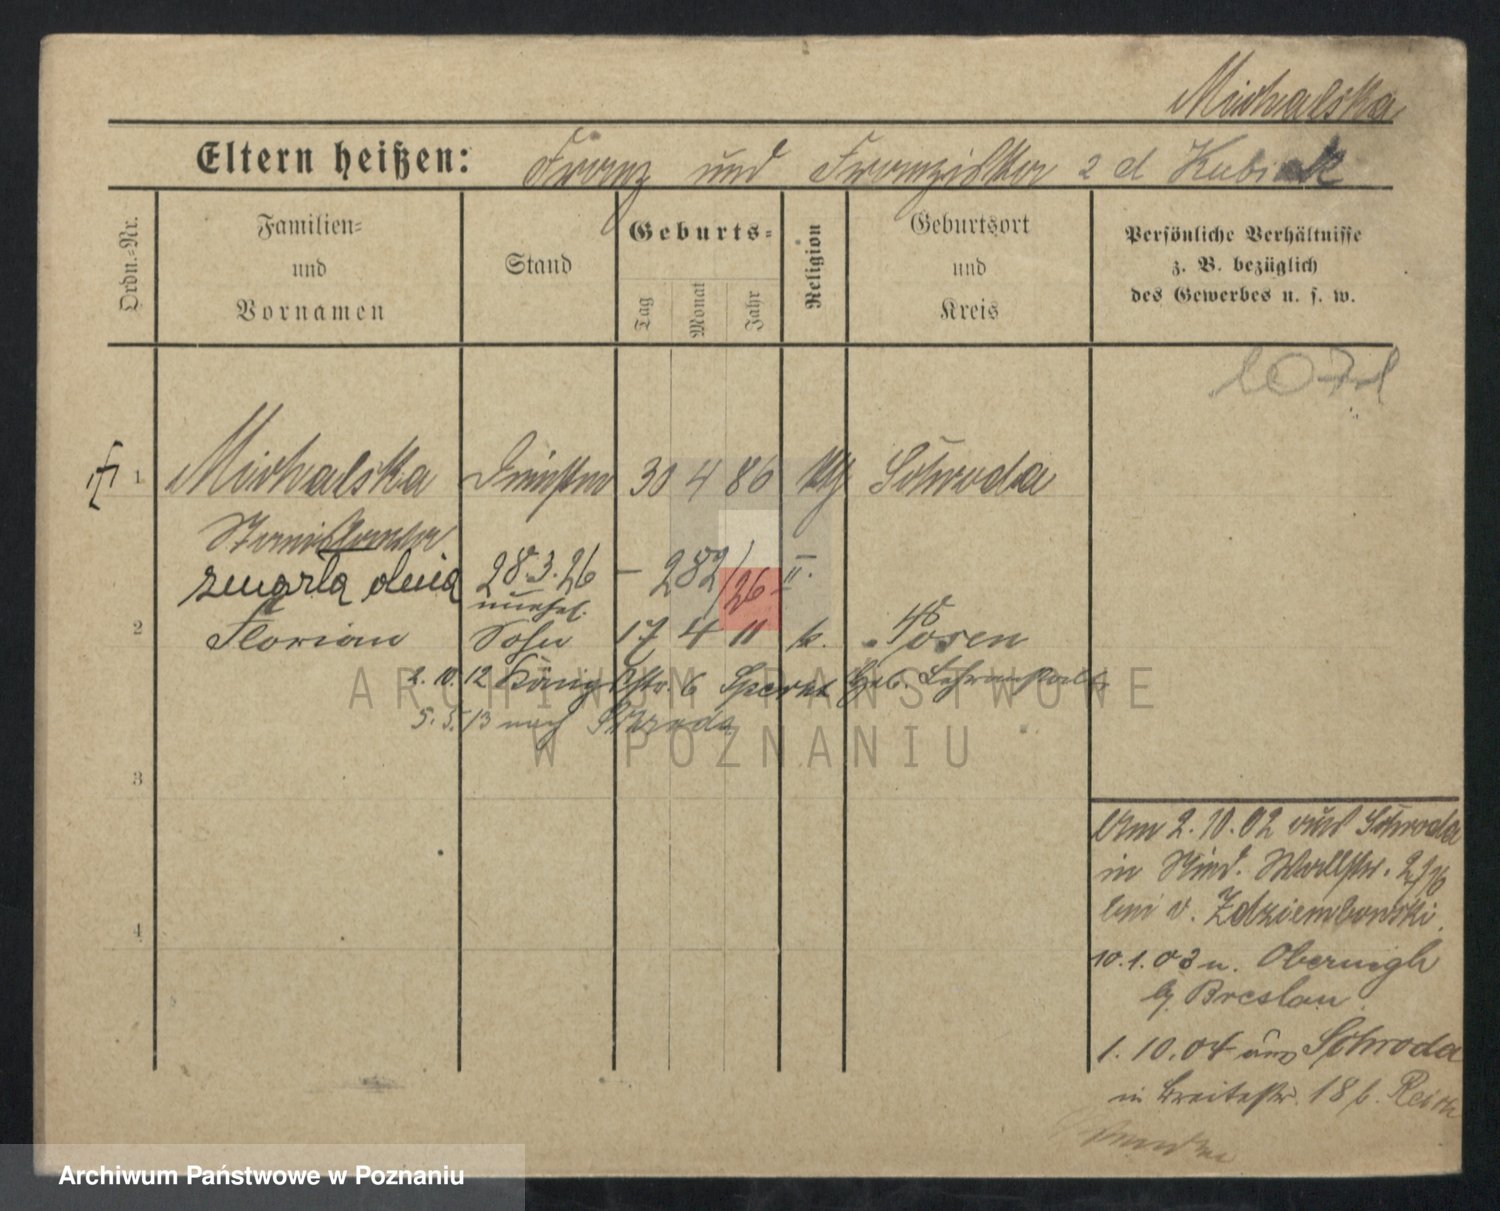 Michalska
Eltern heißen: Franz und Franziska Kubiak
Ordn.-Nr.
Familien-
und
Vornamen
Stand
Geburts-
Tag
Monat
Jahr
Religion
Geburtsort
und
Kreis
Persönliche Verhältnisse
z. B. bezüglich
des Gewerbes u. s. w.
1 Michalska 30 4 86 kth Schroda
Stanislawa
zmarła dnia 28.3.26 – 282/26 II.
unehel.
2 Florian Sohn 17 4 11 k. Posen
2. 10. 12 Königstr. 6 Heb. Lehranstalt
5. 5. 13 nach Schroda
3
4
Am 2.10.02 aus Schroda
in Wallstr.
bei v. Zdziembowski.
10.1.03 n. Obernigk
b/ Breslau.
1.10.04 aus Schroda
in Breitestr. 18 b.
ARCHIWUM PAŃSTWOWE
W POZNANIU
Archiwum Państwowe w Poznaniu